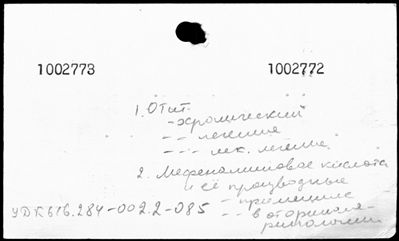 1002773 1002772
1. Отит
- хронический
- - лечение
- - - лек. лечение
2. Мефенаминовая кислота
и её производные
- применение
УДК 616.284-002.2-085 - - в оторинола-
рингологии